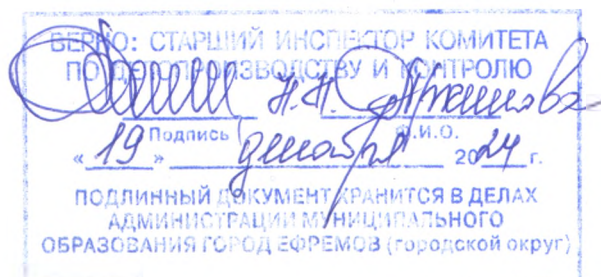 ВЕРНО: СТАРШИЙ ИНСПЕКТОР КОМИТЕТА
ПО ДЕЛОПРОИЗВОДСТВУ И КОНТРОЛЮ
Н.Н.
Подпись Ф.И.О.
« 19 » декабря 2024 г.
ПОДЛИННЫЙ ДОКУМЕНТ ХРАНИТСЯ В ДЕЛАХ
АДМИНИСТРАЦИИ МУНИЦИПАЛЬНОГО
ОБРАЗОВАНИЯ ГОРОД ЕФРЕМОВ (городской округ)